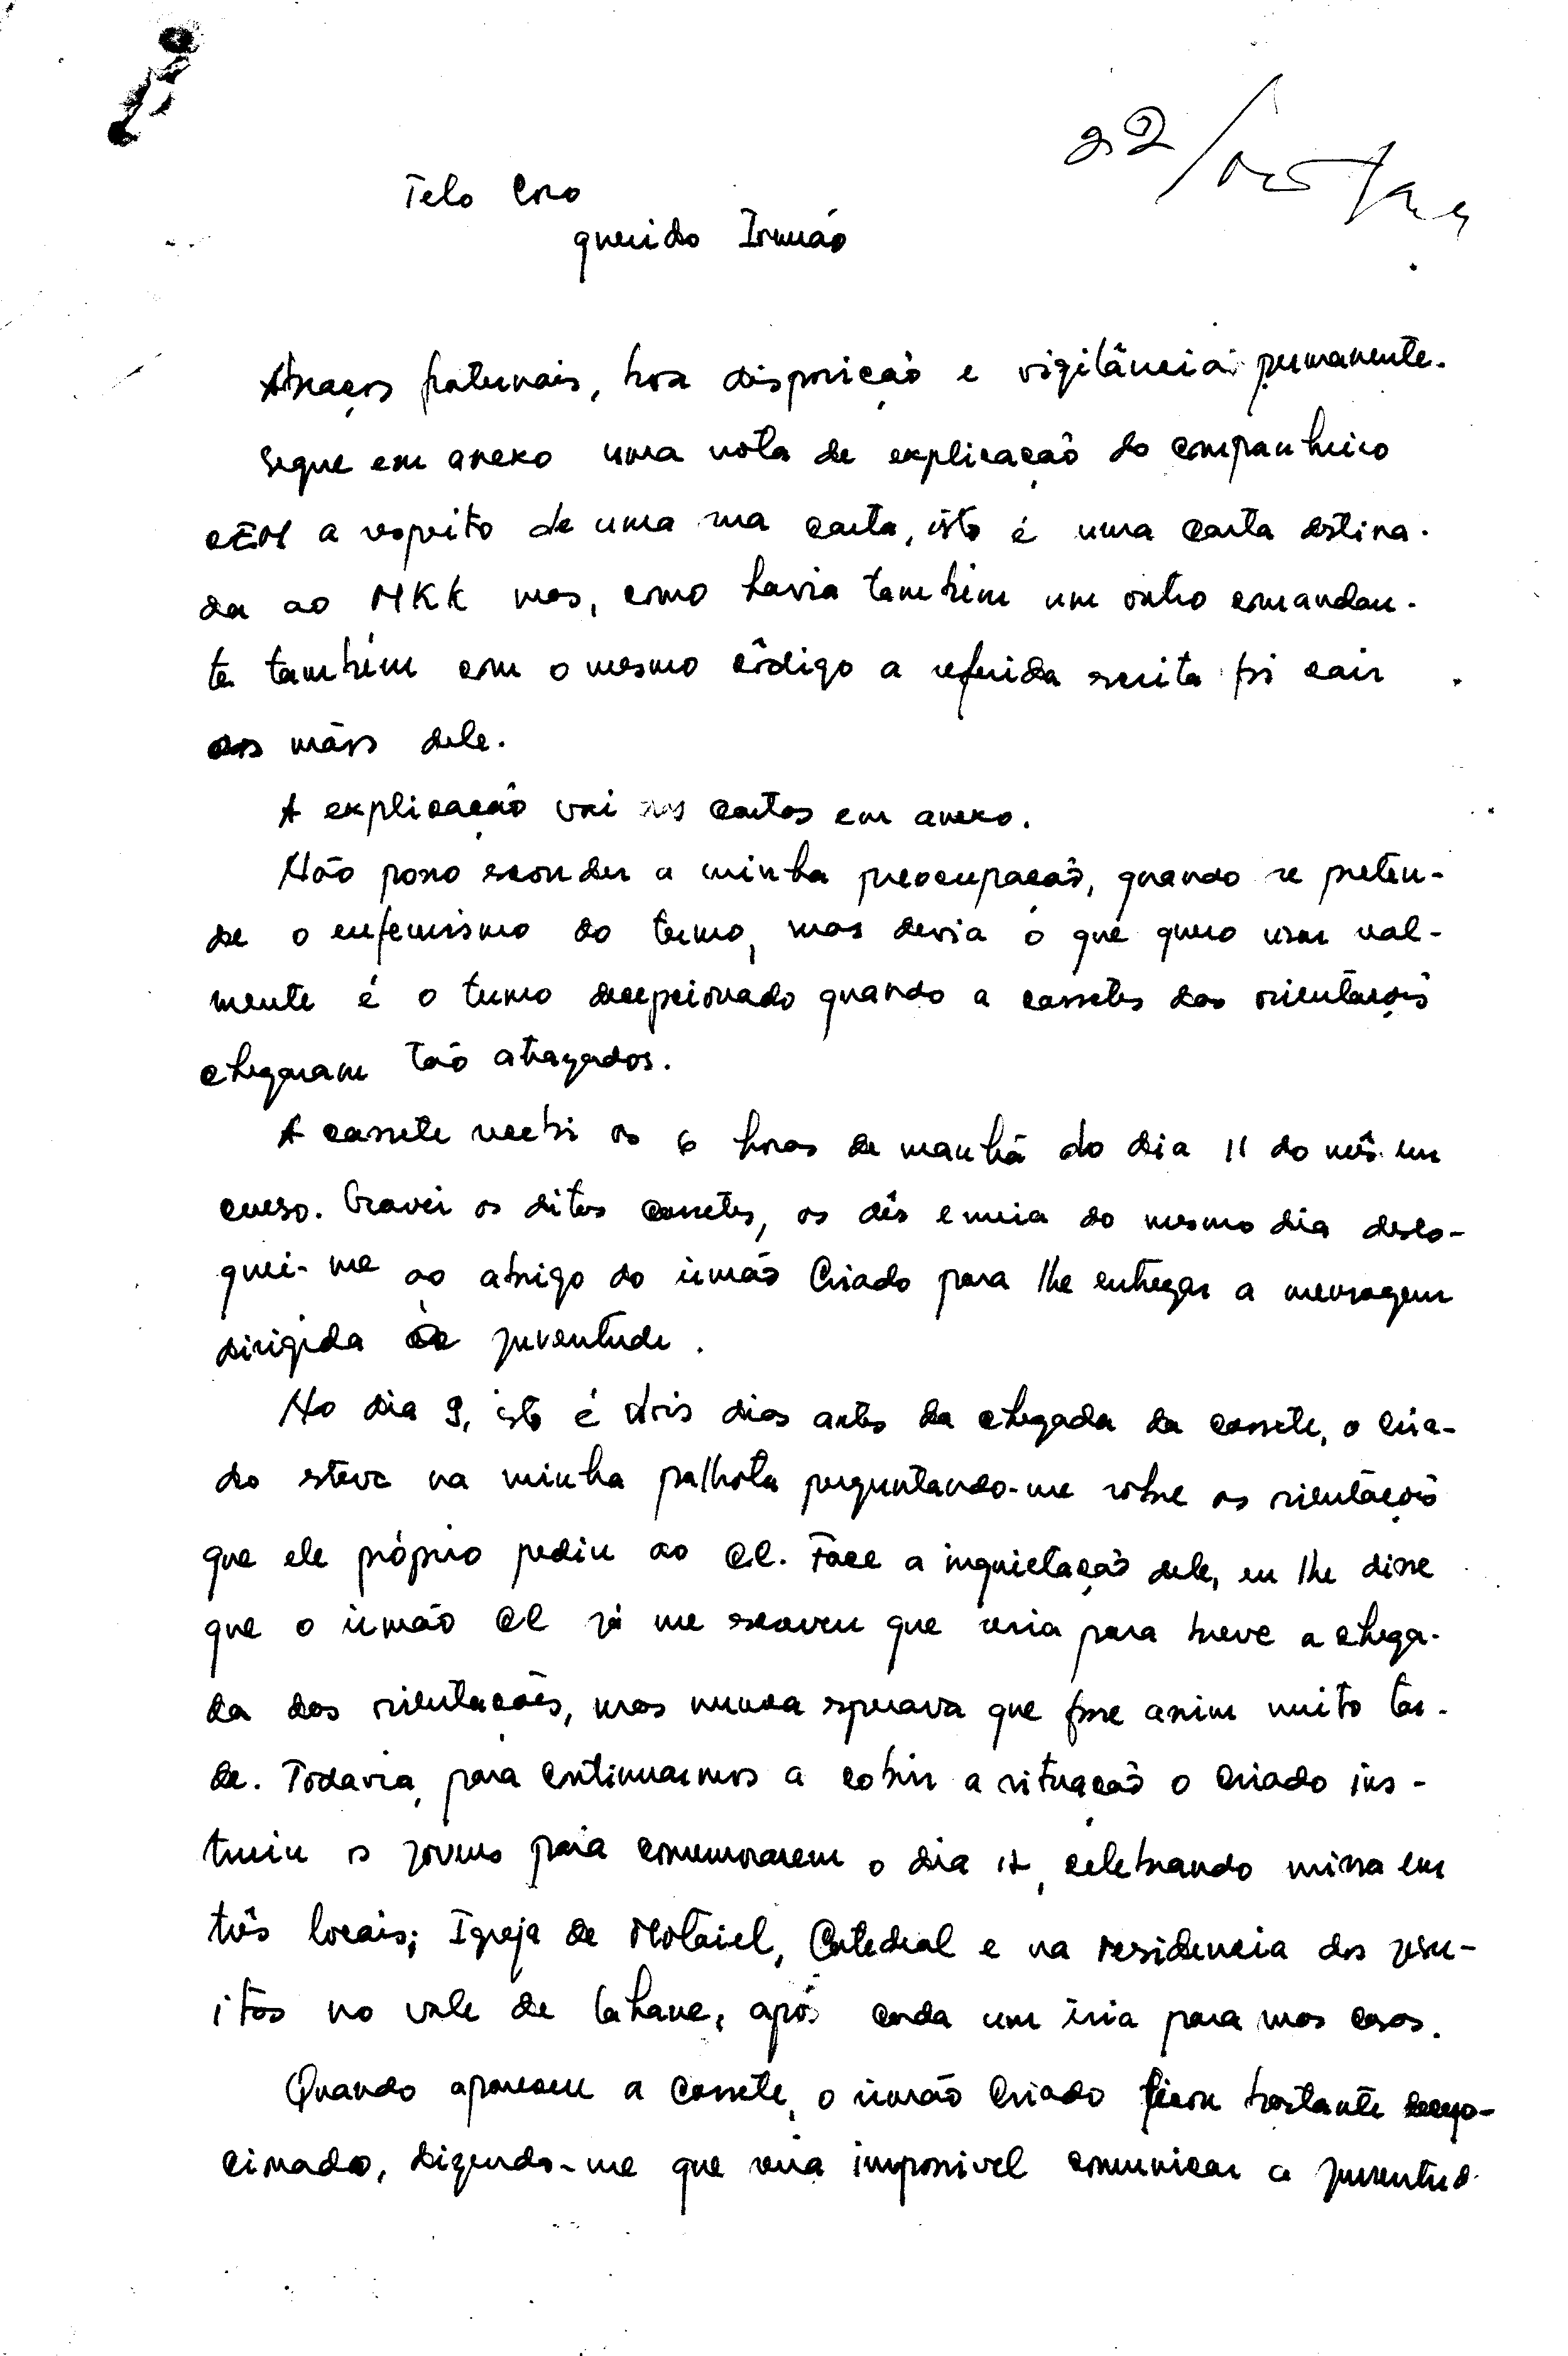 22/
Telo Coro
querido Irmão
Abraços fraternais, boa disposição e vigilância permanente.
Segue em anexo uma nota de explicação do companheiro
a respeito de uma sua carta, isto é uma carta destina-
da ao MKK mas, como havia também um outro comandan-
te também com o mesmo código a referida escrita foi cair
as mãos dele.
A explicação vai nas cartas em anexo.
Não posso esconder a minha preocupação, quando se preten-
de o eufemismo do termo, mas devia o que quero usar real-
mente é o termo decepcionado quando a cassetes das orientaçõis
chegaram tão atrazados.
A cassete recebi as 6 horas de manhã do dia 11 do mês em
curso. Gravei as ditas cassetes, as dês e meia do mesmo dia deslo-
quei-me ao abrigo do irmão Criado para lhe entregar a mensagem
dirigida a juventude.
No dia 9, isto é dois dias antes da chegada da cassete, o Cria-
do esteve na minha palhota perguntando-me sobre as orientaçõis
que ele próprio pediu ao CC. Face a inquietação dele, eu lhe disse
que o irmão CC já me escreveu que seria para breve a chega-
da das orientações, mas nunca esperava que fosse assim muito tar-
de. Todavia, para continuarmos a cobrir a situação o Criado ins-
truiu os jovens para comemorarem o dia 12, celebrando missa em
três locais; Igreja de Motaiel, Catedral e na residencia dos jesu-
itas no vale de Lahane, após cada um iria para suas casas.
Quando apareceu a cassete, o irmão Criado ficou bastante decep-
cionado, dizendo-me que seria impossivel comunicar a juventud